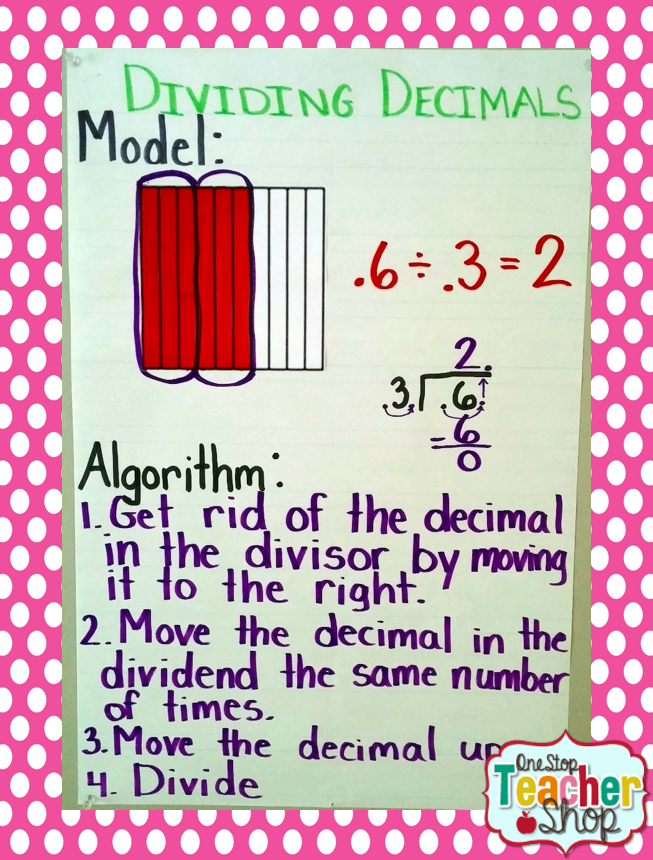 DIVIDING DECIMALS
Model:
.6 ÷ .3 = 2
2.
.3. .6.
-6
0
Algorithm:
1. Get rid of the decimal
in the divisor by moving
it to the right.
2. Move the decimal in the
dividend the same number
of times.
3. Move the decimal
4. Divide
One Stop
Teacher
Shop